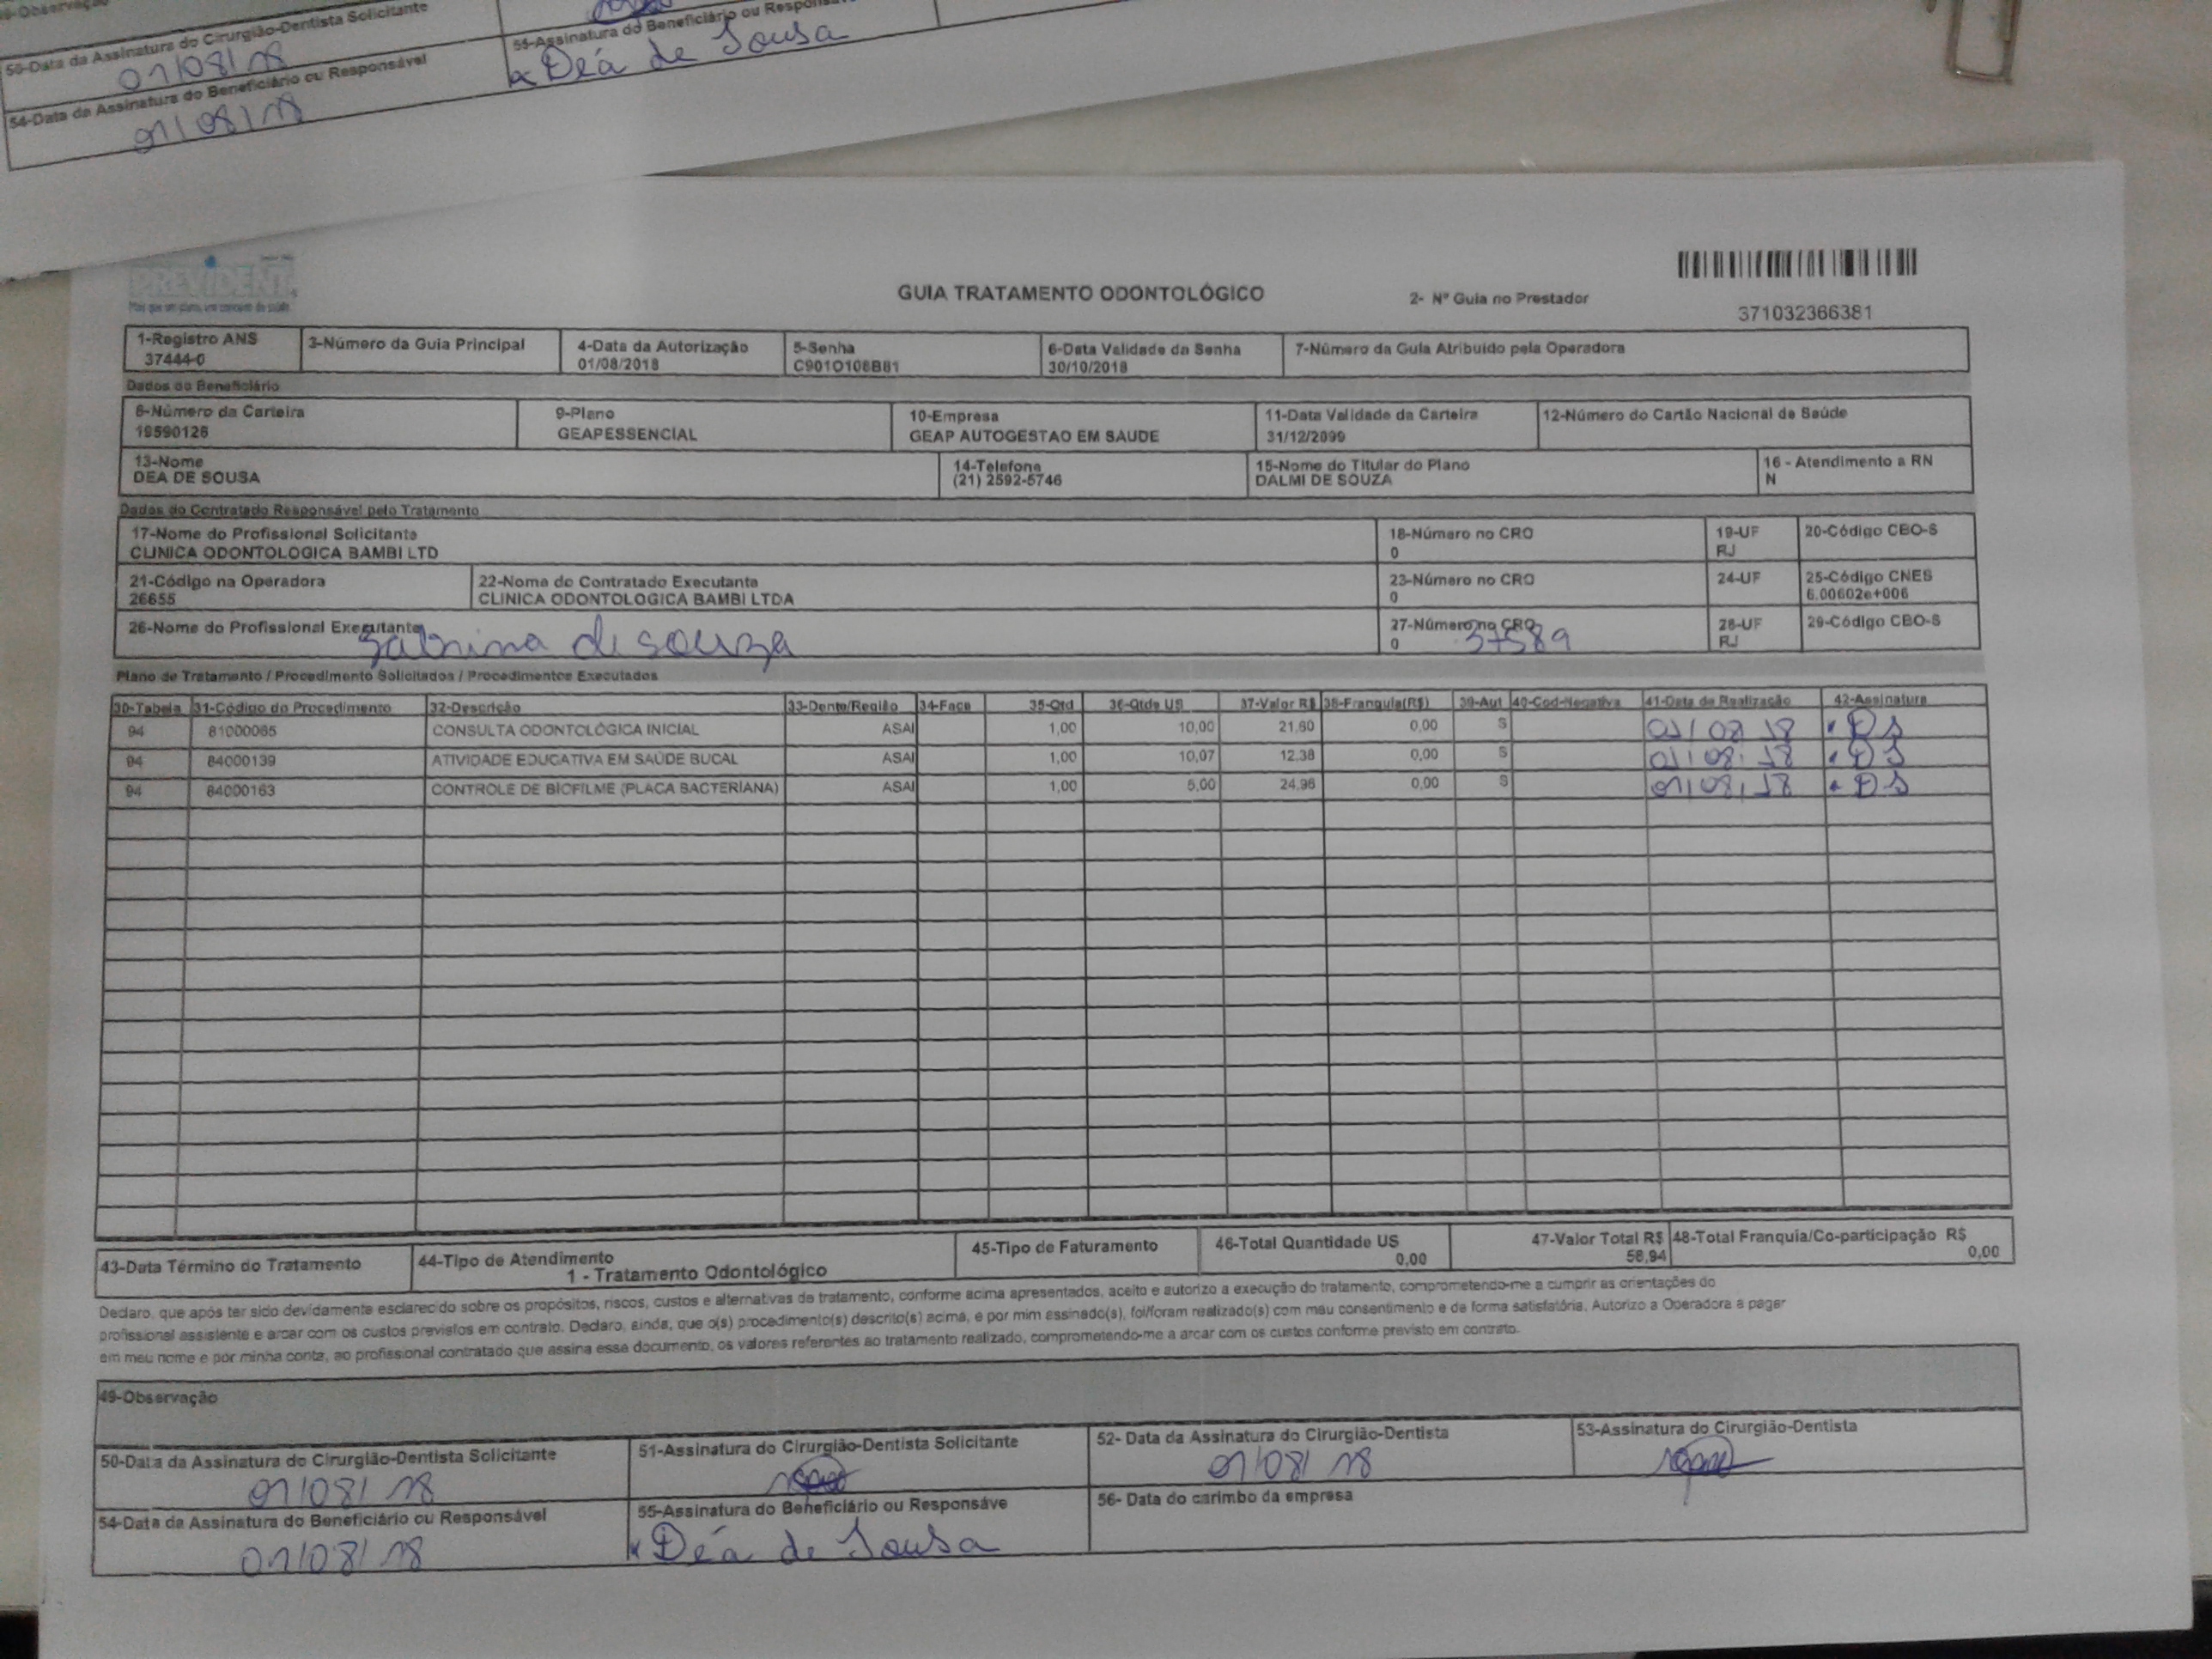 50-Data da Assinatura do Cirurgião-Dentista Solicitante
01/08/18
54-Data da Assinatura do Beneficiário ou Responsável
01/08/18
55-Assinatura do Beneficiário ou
x Déa de Sousa
PREVIDENT
GUIA TRATAMENTO ODONTOLÓGICO
2- Nº Guia no Prestador
371032366381
1-Registro ANS
37444-0
3-Número da Guia Principal
4-Data da Autorização
01/08/2018
5-Senha
6-Data Validade da Senha
30/10/2018
7-Número da Guia Atribuido pela Operadora
Dados do Beneficiário
8-Número da Carteira
19590126
9-Plano
GEAPESSENCIAL
10-Empresa
GEAP AUTOGESTAO EM SAUDE
11-Data Validade da Carteira
31/12/2099
12-Número do Cartão Nacional de Saúde
13-Nome
DEA DE SOUSA
14-Telefone
(21) 2592-5746
15-Nome do Titular do Plano
DALMI DE SOUZA
16 - Atendimento a RN
N
Dados do Contratado Responsável pelo Tratamento
17-Nome do Profissional Solicitante
CLINICA ODONTOLOGICA BAMBI LTD
18-Número no CRO
0
19-UF
RJ
20-Código CBO-S
21-Código na Operadora
26655
22-Nome do Contratado Executante
CLINICA ODONTOLOGICA BAMBI LTDA
23-Número no CRO
0
24-UF
25-Código CNES
6.00602e+006
26-Nome do Profissional Executante
Sabrina de souza
27-Número no CRO
0 37589
28-UF
RJ
29-Código CBO-S
Plano de Tratamento / Procedimento Solicitados / Procedimentos Executados
30-Tabela 31-Código do Procedimento 32-Descrição 33-Dente/Região 34-Face 35-Qtd 36-Qtde US 37-Valor R$ 38-Franquia(R$) 39-Aut 40-Cod-Negativa 41-Data de Realização 42-Assinatura
94 81000065 CONSULTA ODONTOLÓGICA INICIAL ASAI 1,00 10,00 21,60 0,00 S 01/08/18 DS
94 84000139 ATIVIDADE EDUCATIVA EM SAÚDE BUCAL ASAI 1,00 10,07 12,38 0,00 S 01/08/18 DS
94 84000163 CONTROLE DE BIOFILME (PLACA BACTERIANA) ASAI 1,00 5,00 24,96 0,00 S 01/08/18 DS
43-Data Término do Tratamento
44-Tipo de Atendimento
1 - Tratamento Odontológico
45-Tipo de Faturamento
46-Total Quantidade US
0,00
47-Valor Total R$
58,94
48-Total Franquia/Co-participação R$
0,00
Declaro, que após ter sido devidamente esclarecido sobre os propósitos, riscos, custos e alternativas de tratamento, conforme acima apresentados, aceito e autorizo a execução do tratamento, comprometendo-me a cumprir as orientações do
profissional assistente e arcar com os custos previstos em contrato. Declaro, ainda, que o(s) procedimento(s) descrito(s) acima, e por mim assinado(s), foi/foram realizado(s) com meu consentimento e de forma satisfatória. Autorizo a Operadora a pagar
em meu nome e por minha conta, ao profissional contratado que assina esse documento, os valores referentes ao tratamento realizado, comprometendo-me a arcar com os custos conforme previsto em contrato.
49-Observação
50-Data da Assinatura do Cirurgião-Dentista Solicitante
01/08/18
51-Assinatura do Cirurgião-Dentista Solicitante
52- Data da Assinatura do Cirurgião-Dentista
01/08/18
53-Assinatura do Cirurgião-Dentista
54-Data da Assinatura do Beneficiário ou Responsável
01/08/18
55-Assinatura do Beneficiário ou Responsáve
x Déa de Sousa
56- Data do carimbo da empresa